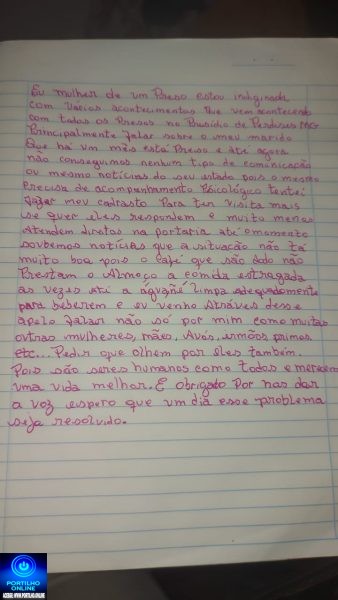 Eu mulher de um Preso estou indignada
com vários acontecimentos que vem acontecendo
com todos os Presos no Presídio de Perdões MG
Principalmente falar sobre o meu marido
Que há um mês está Preso e até agora
não conseguimos nenhum tipo de comunicação
ou mesmo notícias do seu estado pois o mesmo
Precisa de acompanhamento Psicológico tentei
fazer meu cadrasto Para ter visita mais
se quer eles respondem e muito menos
atendem direto na portaria até o momento
soubemos notícias que a situação não tá
muito boa pois o café que são dado não
Prestam o Almoço a comida estragada
as vezes até a água limpa adequadamente
para beberem e eu venho Através desse
apelo falar não só por mim como muitas
outras mulheres, mães, Avós, irmãos primos
etc... Pedir que olhem por eles também.
Pois são seres humanos como todos e merecem
uma vida melhor. E obrigado Por nos dar
a voz espero que um dia esse problema
seja resolvido.
PORTILHO
ONLINE
ACESSE: WWW.PORTILHO.ONLINE